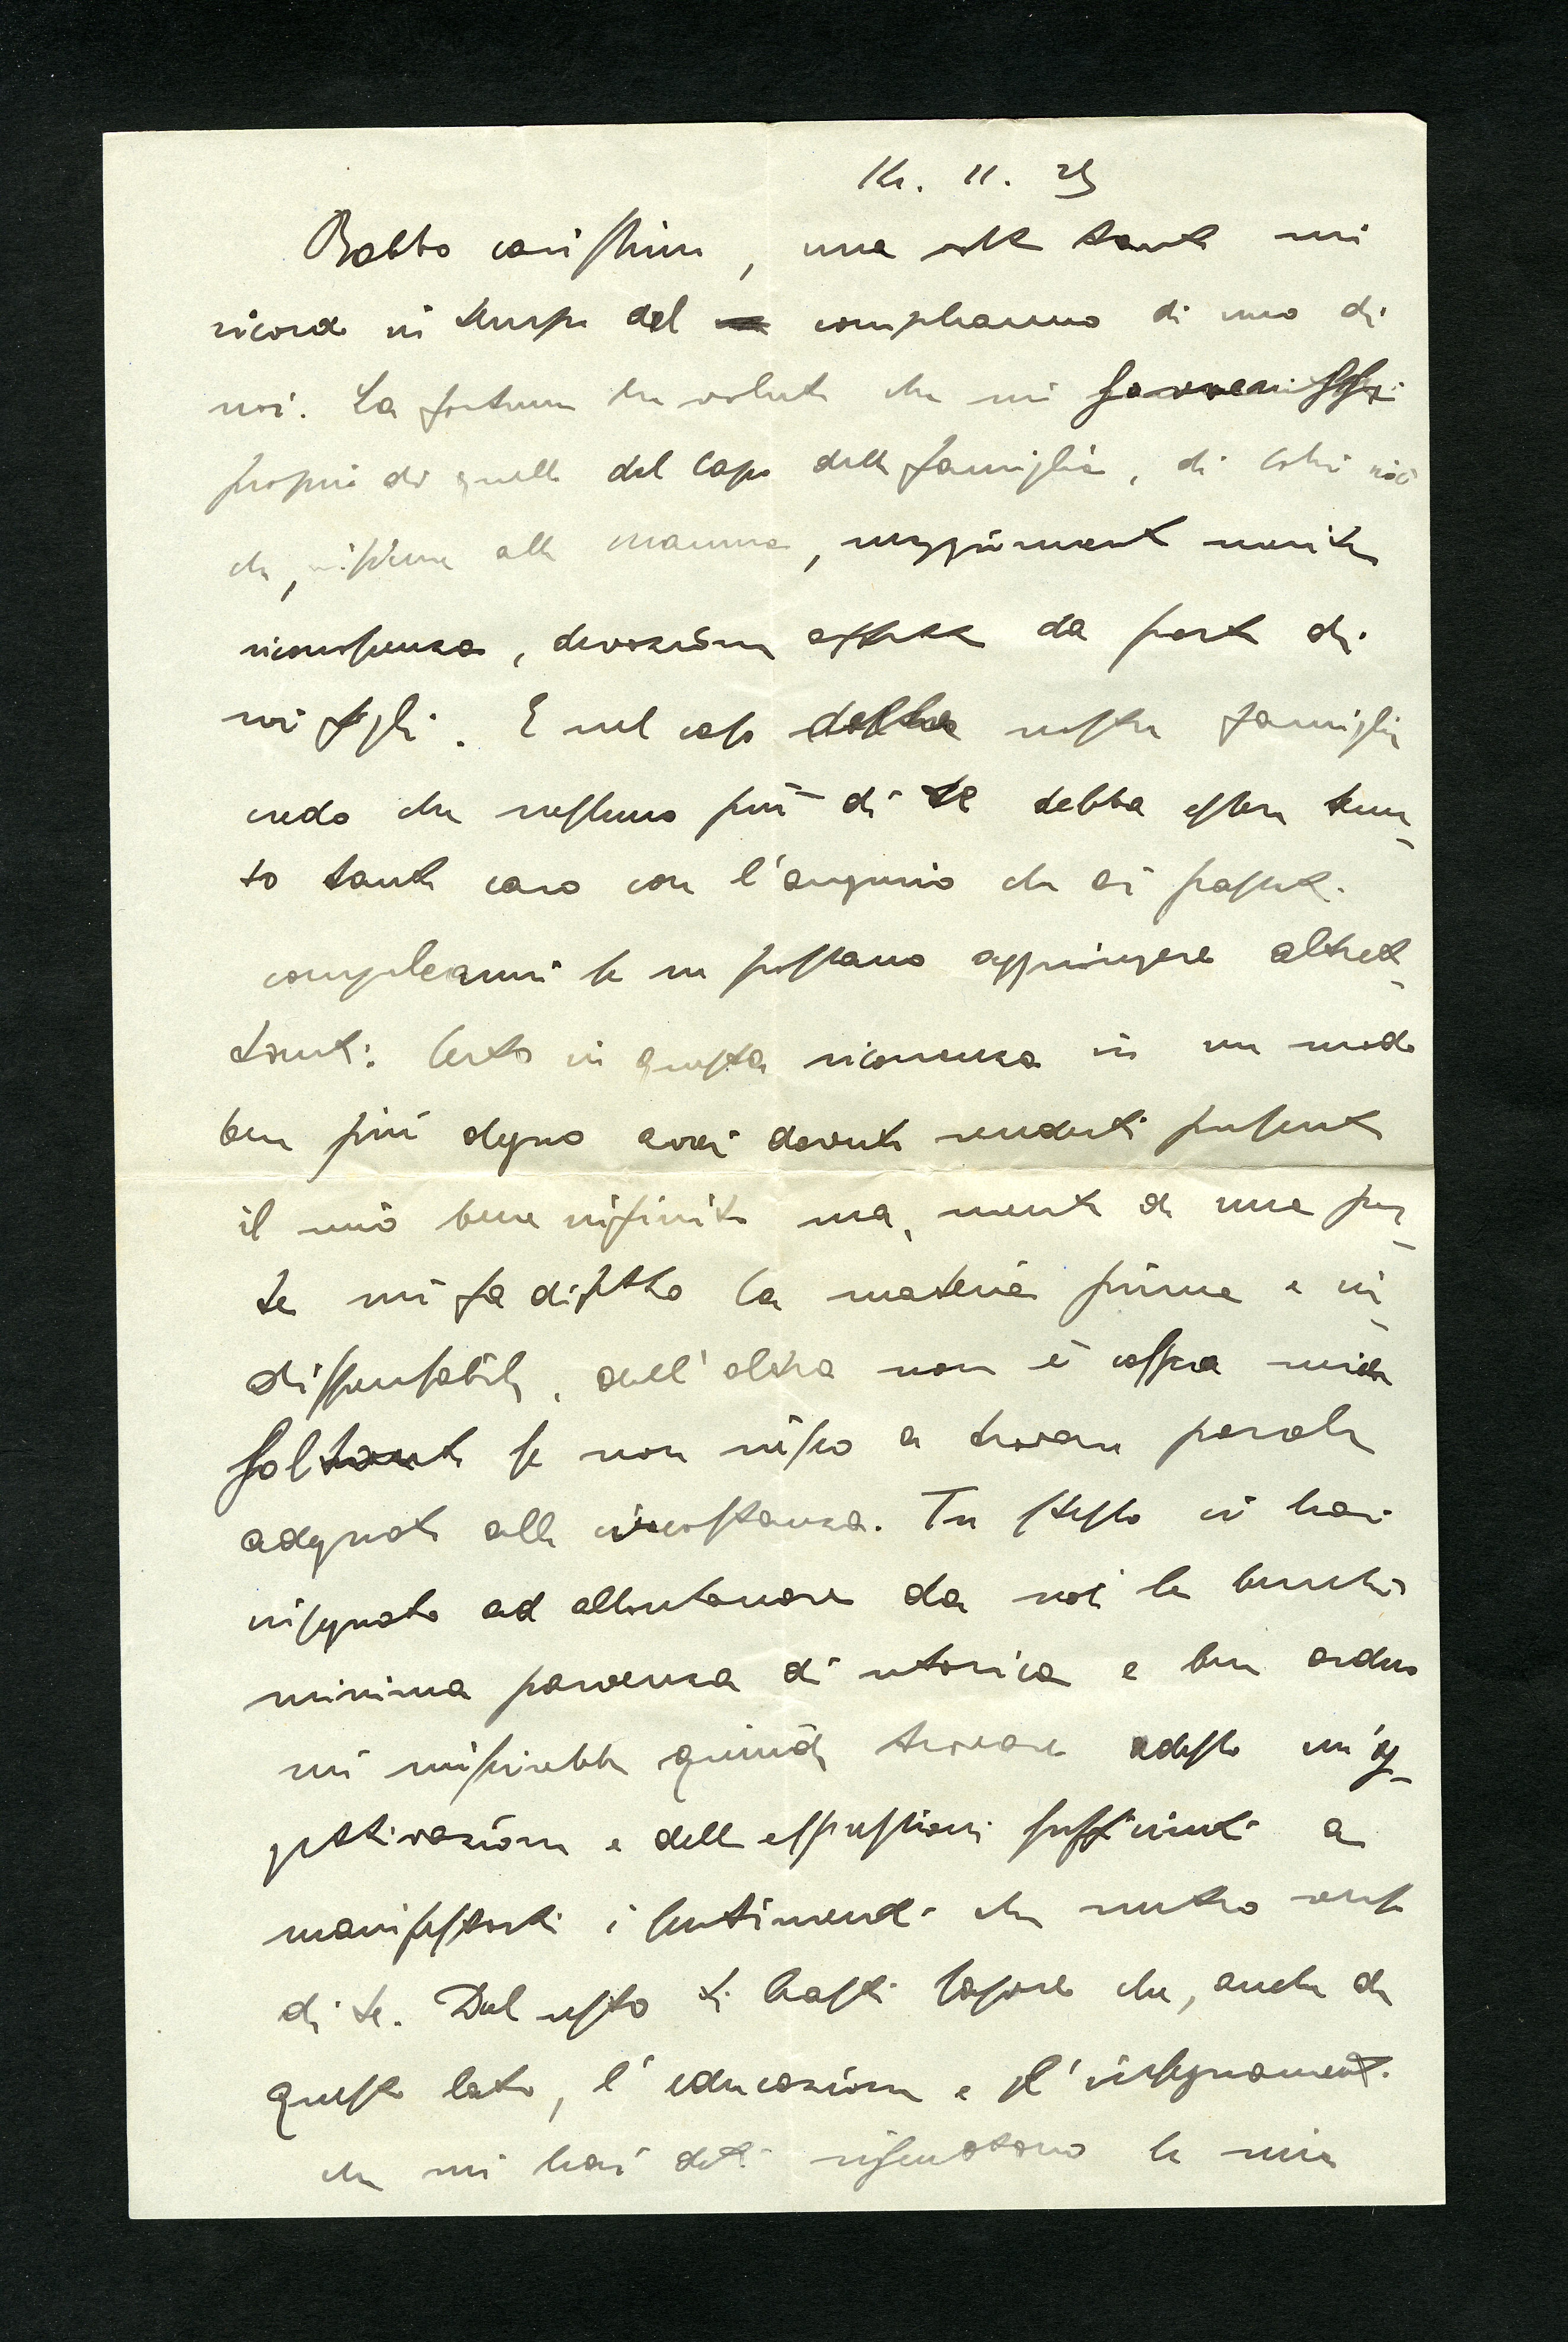 11. 25
Babbo carissimo, una volta tanto mi
ricordo in tempo del compleanno di uno di
noi. La fortuna ha voluto che mi sovvenissi
proprio di quello del capo della famiglia, di colui cioè
che, insieme alla mamma, maggiormente merita
riconoscenza, devozione affetto da parte di
noi figli. E nel caso della nostra famiglia
credo che nessuno più di te debba essere tenu-
to tanto caro con l'augurio che ai passati
compleanni se ne possano aggiungere altret-
tanti. Certo in questa ricorrenza in un modo
ben più degno avrei dovuto renderti presente
il mio bene infinito ma, mentre da una par-
te mi fa difetto la materia prima e in-
dispensabile, dall'altra non è colpa mia
soltanto se non riesco a trovare parole
adeguate alla circostanza. Tu stesso ci hai
insegnato ad allontanare da noi la benché
minima parvenza di retorica e ben arduo
mi riuscirebbe quindi trovare adesso
e delle espressioni sufficienti a
manifestarti i sentimenti che nutro verso
di te. Del resto ti basti sapere che, anche da
questo lato, l'educazione e l'insegnamento
che mi hai dato la mia